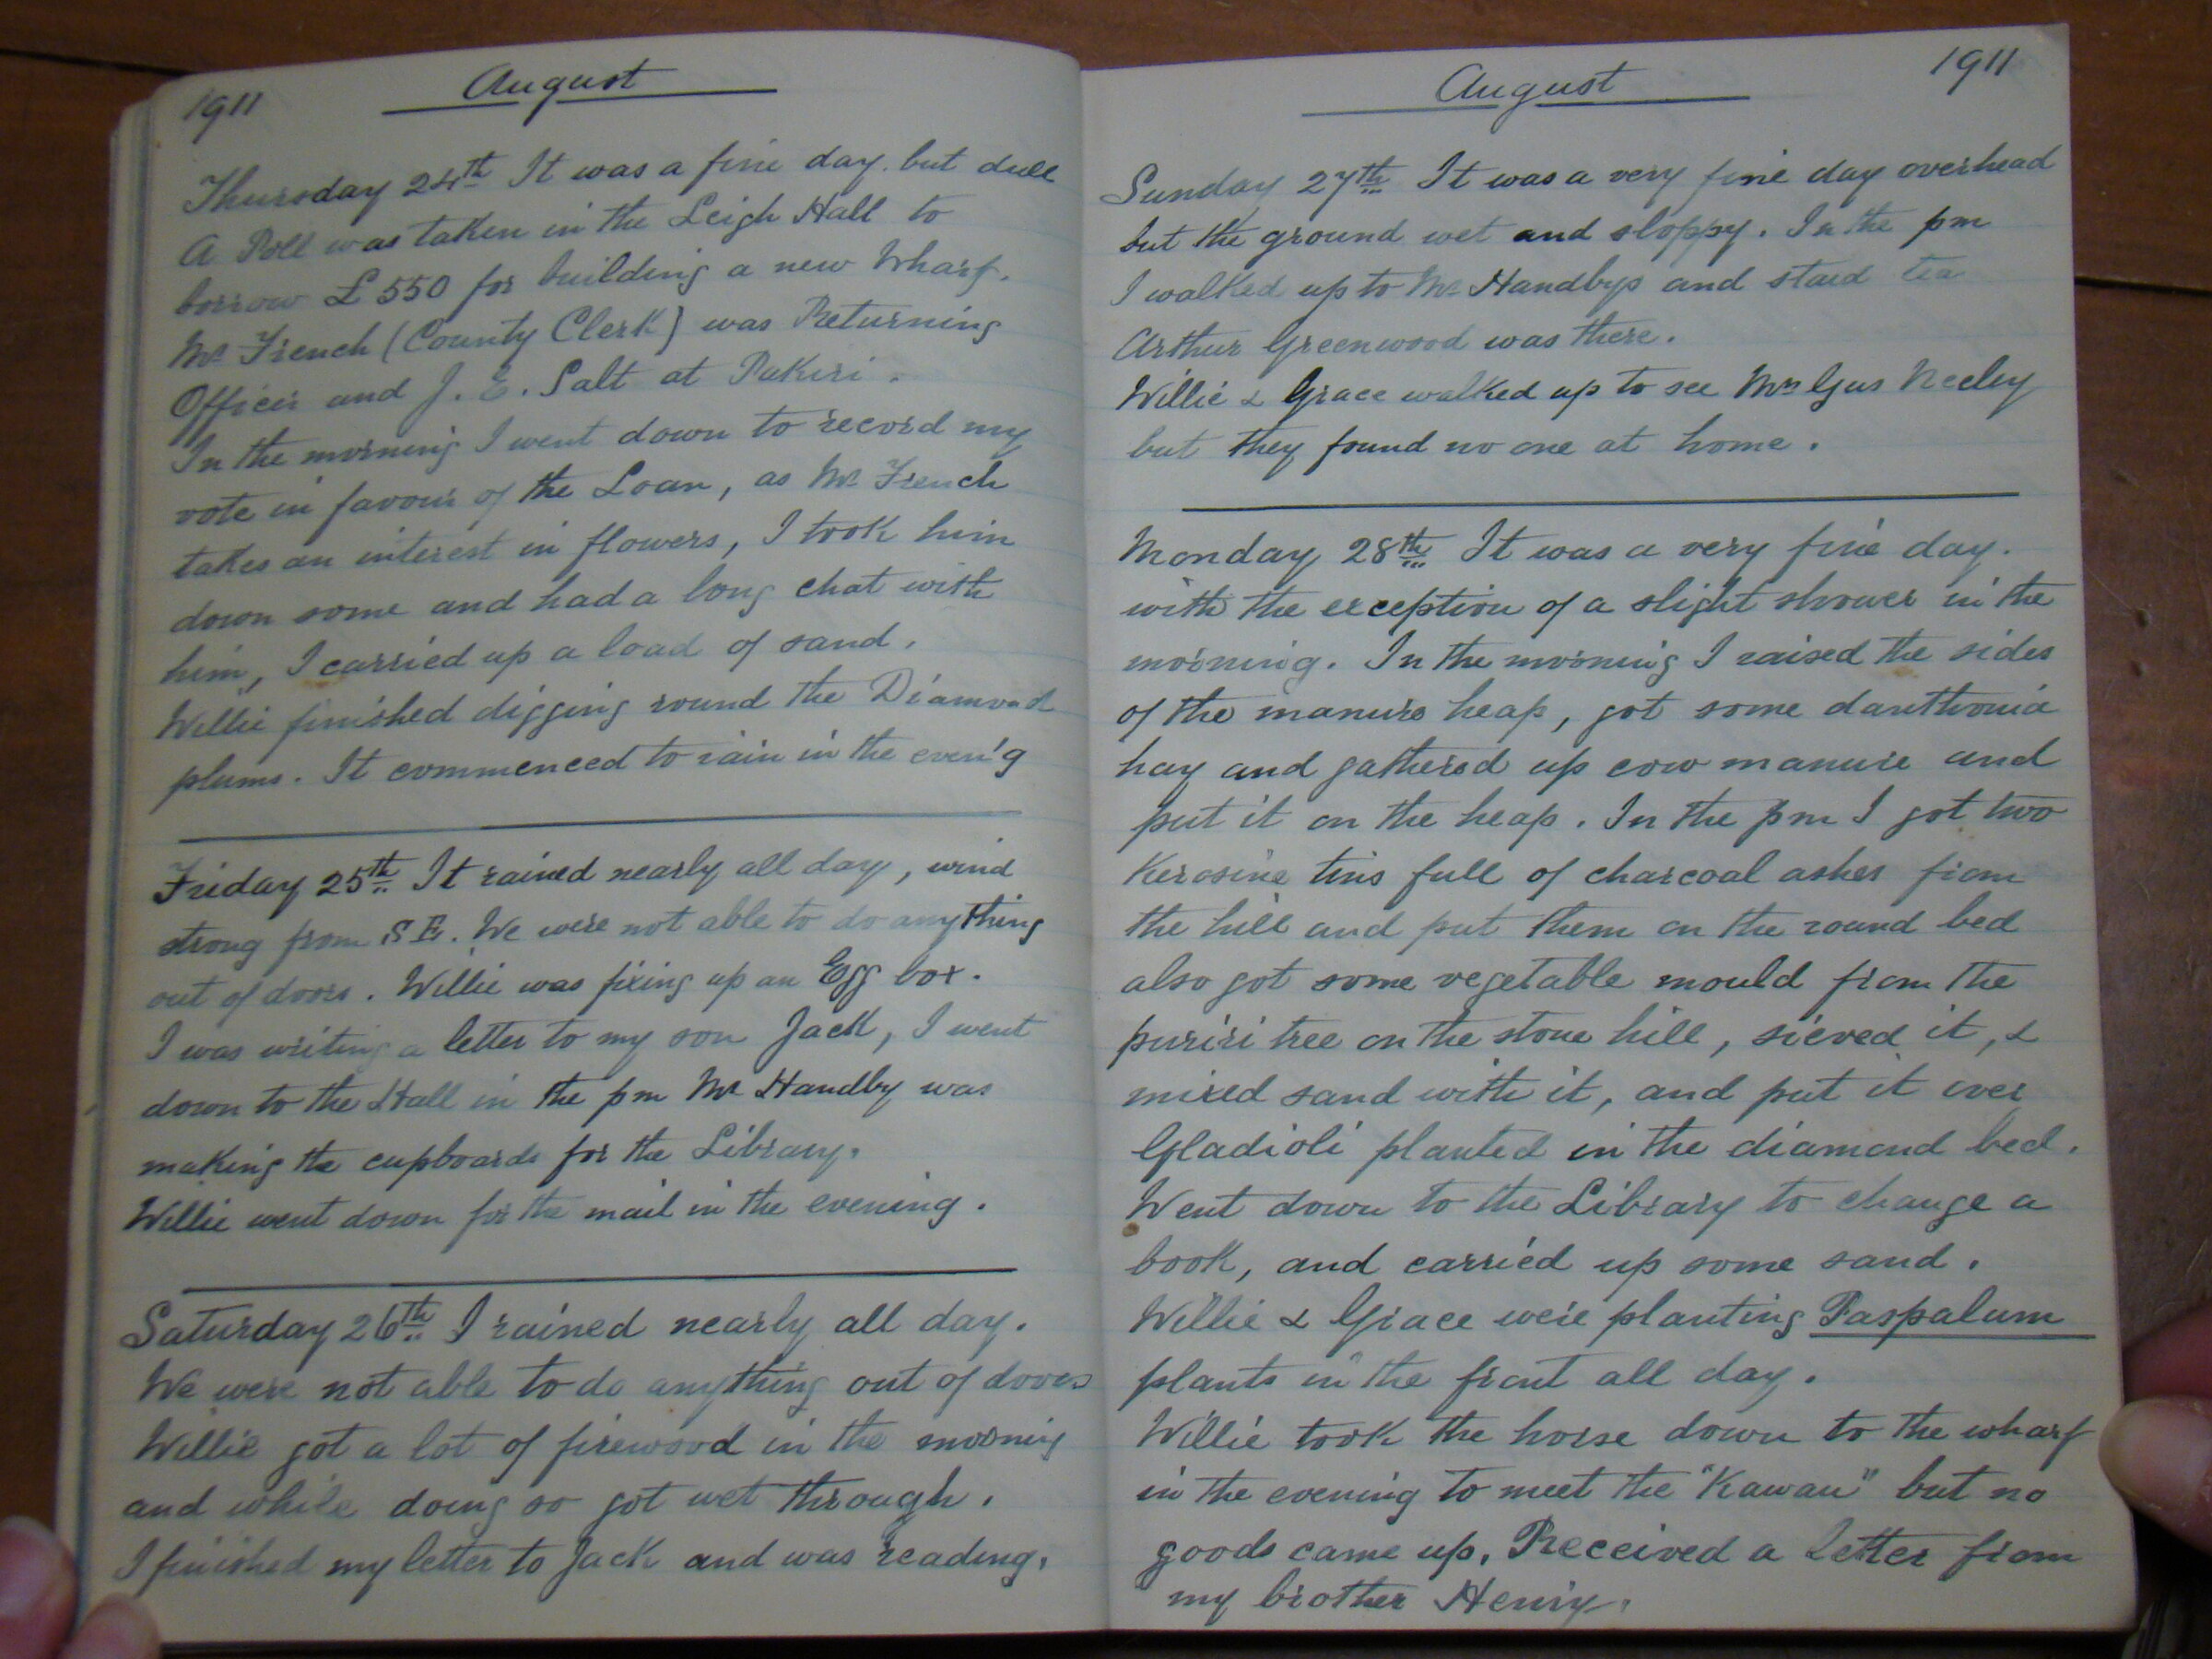 1911 August
Thursday 24th It was a fine day. but dull
A Poll was taken in the Leigh Hall to
borrow £550 for building a new Wharf.
Mr French (County Clerk) was Returning
Officer and J. E. Salt at Pakiri.
In the morning I went down to record my
vote in favour of the Loan, as Mr French
takes an interest in flowers, I took him
down some and had a long chat with
him, I carried up a load of sand.
Willie finished digging round the Diamond
plums. It commenced to rain in the even'g
Friday 25th It rained nearly all day, wind
strong from S E. We were not able to do anything
out of doors. Willie was fixing up an Egg box.
I was writing a letter to my son Jack, I went
down to the Hall in the pm Mr Handby was
making the cupboards for the Library.
Willie went down for the mail in the evening.
Saturday 26th I rained nearly all day.
We were not able to do anything out of doors
Willie got a lot of firewood in the morning
and while doing so got wet through.
I finished my letter to Jack and was reading.
August 1911
Sunday 27th It was a very fine day overhead
but the ground wet and sloppy. In the pm
I walked up to Mr Handbys and staid tea
Arthur Greenwood was there.
Willie & Grace walked up to see Mrs Gus Neeley
but they found no one at home.
Monday 28th It was a very fine day.
with the exception of a slight shower in the
morning. In the morning I raised the sides
of the manure heap, got some danthonia
hay and gathered up cow manure and
put it on the heap. In the pm I got two
Kerosine tins full of charcoal ashes from
the hill and put them on the round bed
also got some vegetable mould from the
puriri tree on the stone hill, sieved it, &
mixed sand with it, and put it over
Gladioli planted in the diamond bed.
Went down to the Library to change a
book, and carried up some sand.
Willie & Grace were planting Paspalum
plants in the front all day.
Willie took the horse down to the wharf
in the evening to meet the "Kawau" but no
goods came up. Received a letter from
my brother Henry.